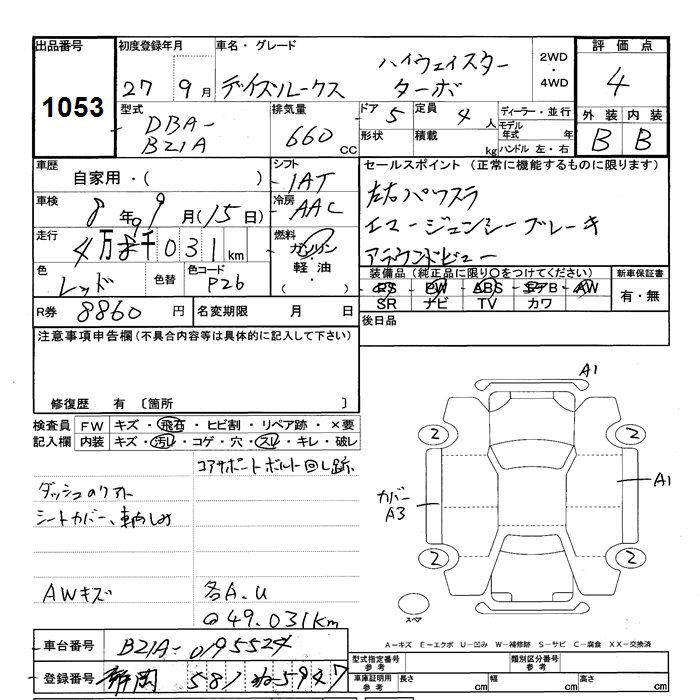 出品番号 初度登録年月 車名・グレード 2WD・4WD 評価点
1053 27 9月 デイズルークス ハイウェイスターターボ 4
型式 排気量 ドア 5 定員 4人 ディーラー・並行 外装 内装
DBA-B21A 660 CC 形状 積載 kg モデル年式 年 ハンドル 左・右 B B
車歴 自家用・( ) シフト セールスポイント (正常に機能するものに限ります)
1AT
車検 8年 9月(15日) 冷房 AAC 左右パワスラ
エマージェンシーブレーキ
走行 4万 千031km 燃料 ガソリン 軽油・( ) アラウンドビュー
色 レッド 色替 色コード P26 装備品 (純正品に限り〇をつけてください) 新車保証書
PS PW ABS エアB AW 有・無
SR ナビ TV カワ
R券 8860円 名変期限 月 日 後日品
注意事項申告欄 (不具合内容等は具体的に記入して下さい)
修復歴 有 〔箇所 〕
検査員記入欄 FW キズ・飛石・ヒビ割・リペア跡・×要
内装 キズ・汚レ・コゲ・穴・スレ・キレ・破レ
コアサポートボルト回し跡
ダッシュのリフト
シートカバー、車内しみ
AWキズ 各A.U
@49.031km
A1
2 2
カバー A3 A1
2 2
スペア
A-キズ E-エクボ U-凹み W-補修跡 S-サビ C-腐食 XX-交換済
車台番号 B21A-0195524
登録番号 静岡 581 ぬ5947
型式指定番号 参考 類別区分番号 参考
車庫証明用 参考 長さ cm 幅 cm 高さ cm